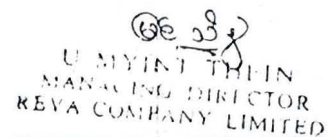 U MYINT THEIN
MANAGING DIRECTOR
REVA COMPANY LIMITED